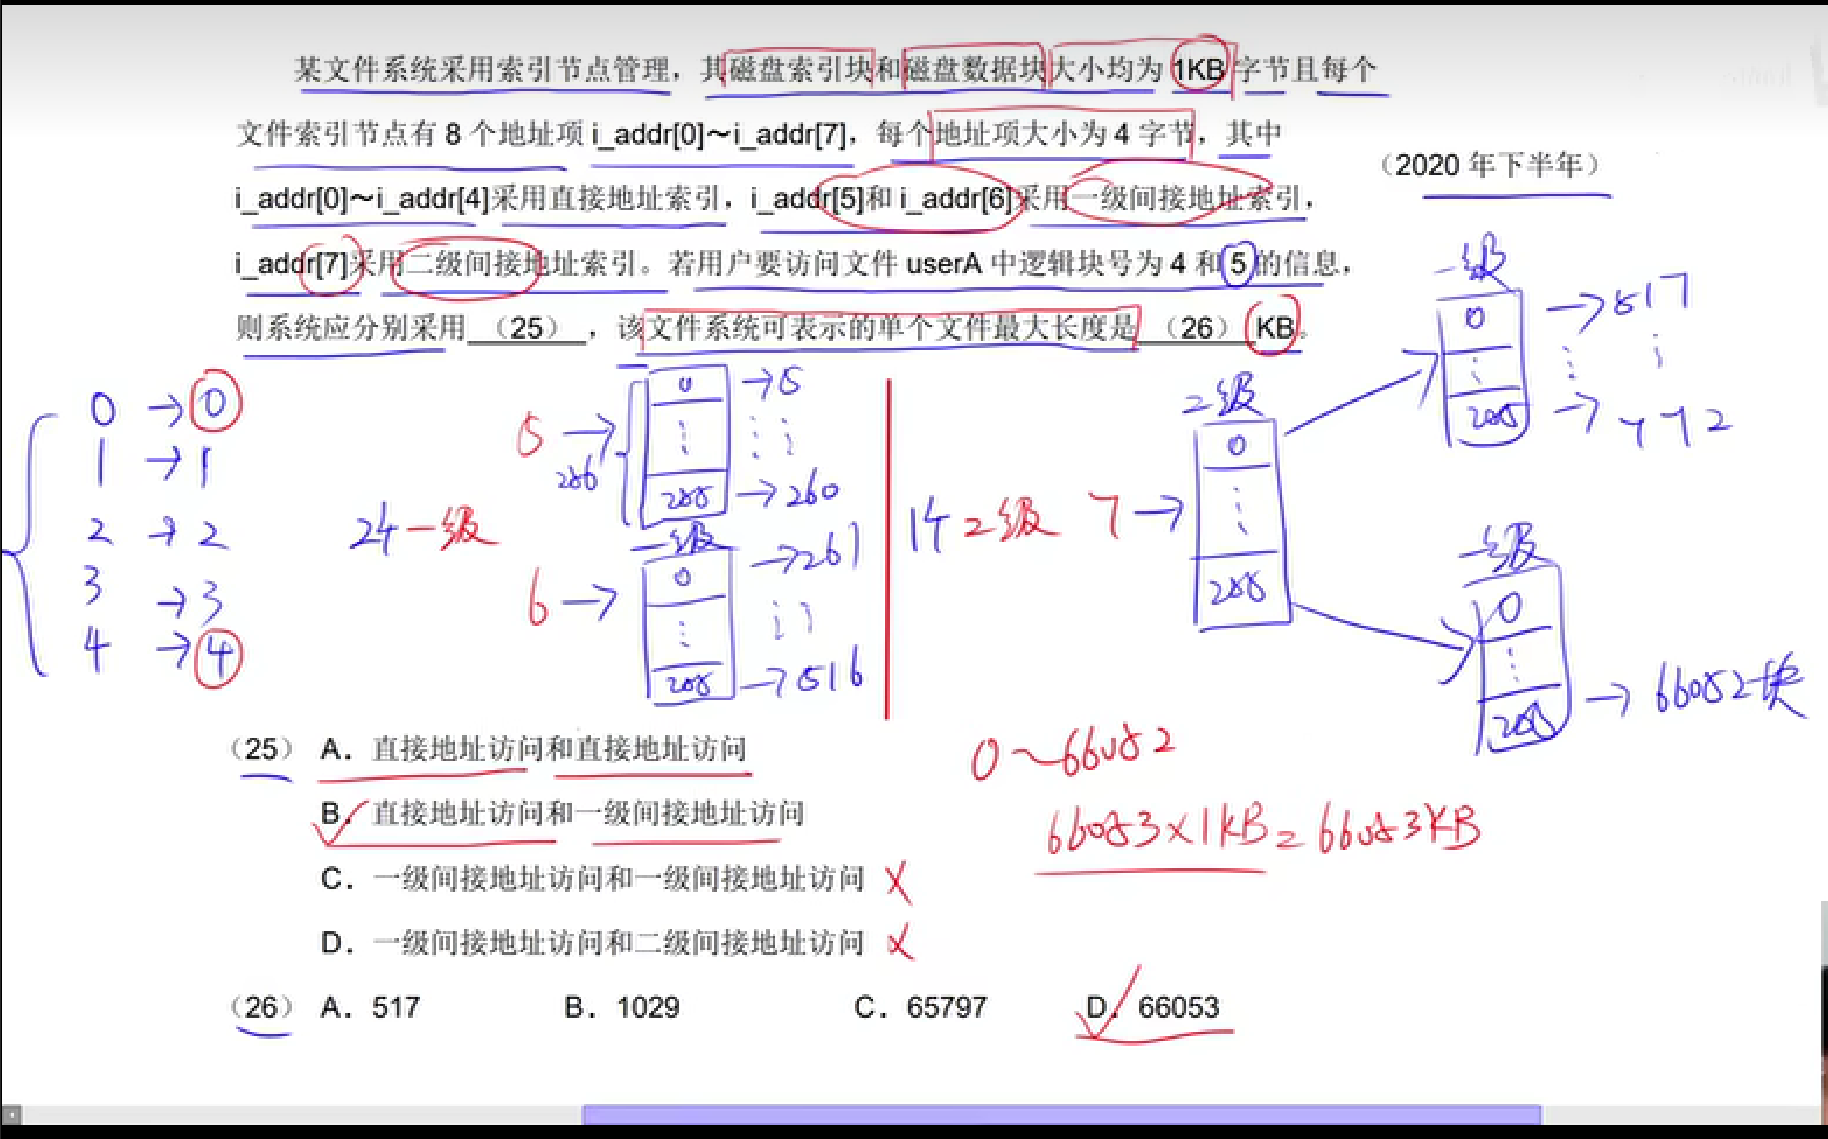 某文件系统采用索引节点管理，其磁盘索引块和磁盘数据块大小均为 1KB 字节且每个
文件索引节点有 8 个地址项 i_addr[0]～i_addr[7]，每个地址项大小为 4 字节，其中
（2020 年下半年）
i_addr[0]～i_addr[4]采用直接地址索引，i_addr[5]和 i_addr[6]采用一级间接地址索引，
i_addr[7]采用二级间接地址索引。若用户要访问文件 userA 中逻辑块号为 4 和 5 的信息，
则系统应分别采用 （25） ，该文件系统可表示的单个文件最大长度是 （26） KB。
0 → 0
1 → 1
2 → 2
3 → 3
4 → 4
2个一级
5 →
256
0 → 5
255 → 260
一级
6 →
0 → 261
255 → 516
1个二级
7 →
二级
0
255
一级
0 → 517
255 → 772
一级
0
255 → 66052块
0～66052
66053×1KB=66053KB
（25） A．直接地址访问和直接地址访问
B．直接地址访问和一级间接地址访问
C．一级间接地址访问和一级间接地址访问 ×
D．一级间接地址访问和二级间接地址访问 ×
（26） A．517 B．1029 C．65797 D．66053